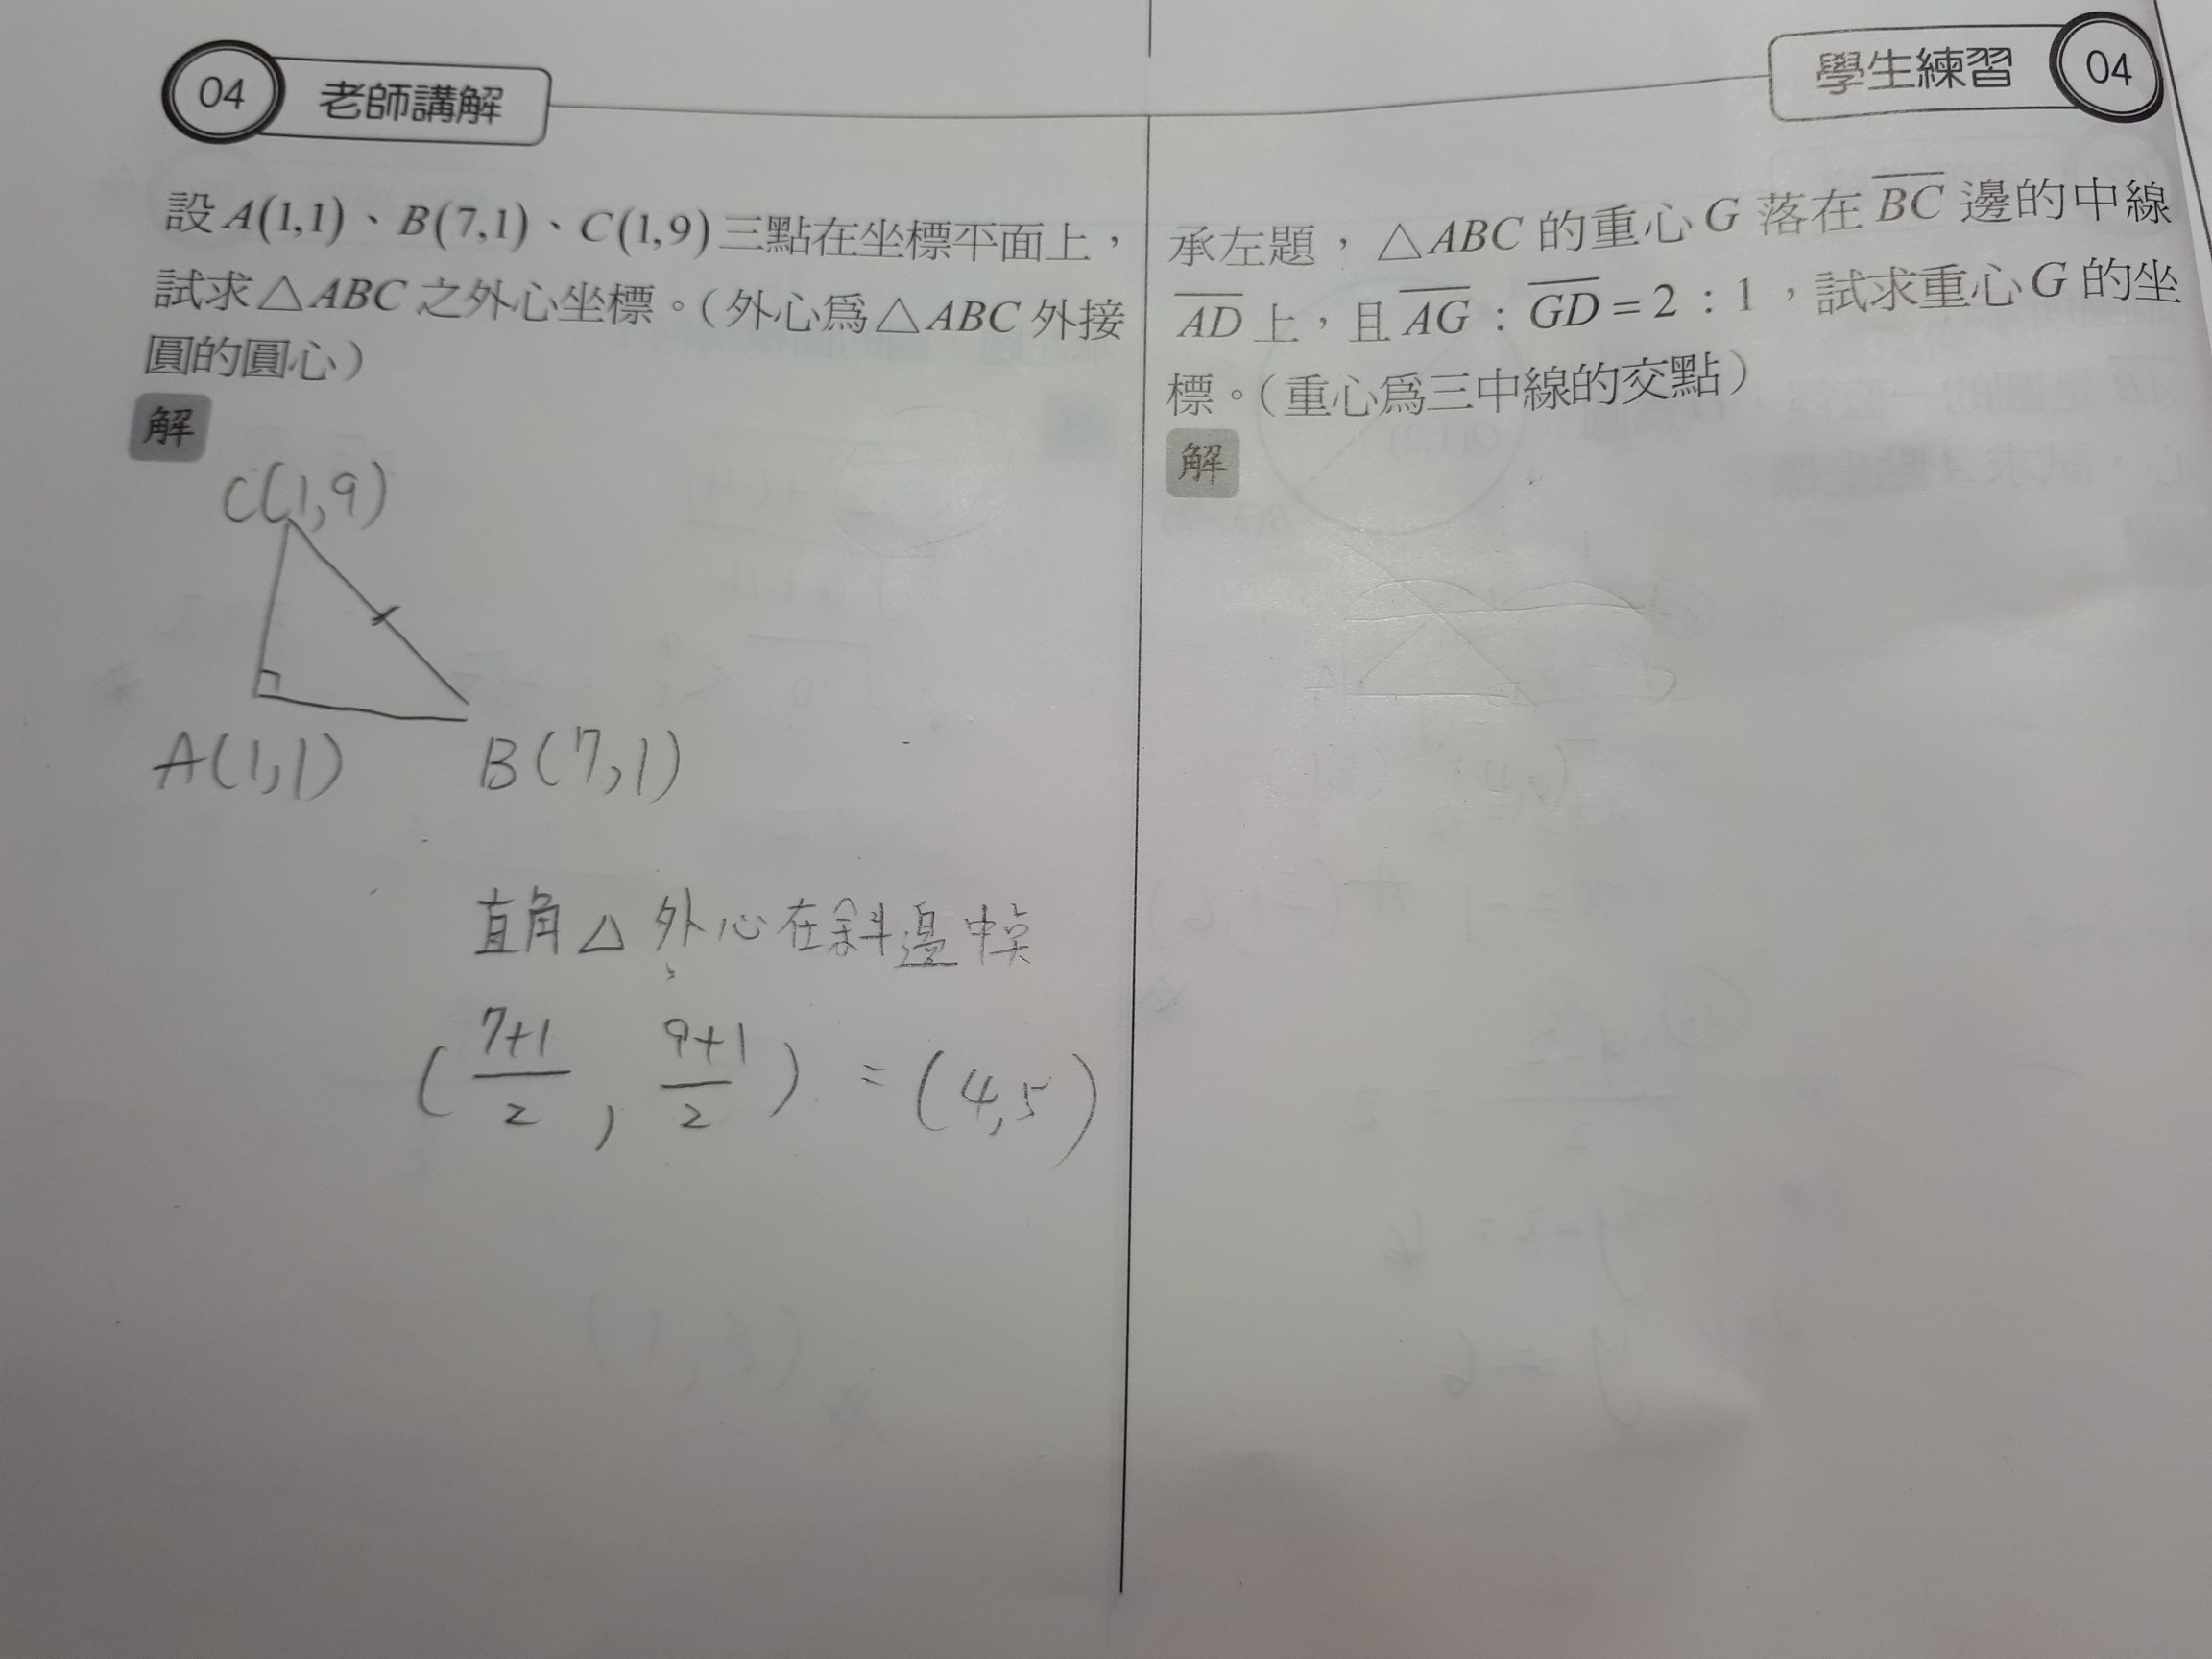 04 老師講解
設A(1,1)、B(7,1)、C(1,9)三點在坐標平面上，
試求△ABC之外心坐標。（外心為△ABC外接
圓的圓心）
解
C(1,9)
A(1,1) B(7,1)
直角△外心在斜邊中点
(7+1/2, 9+1/2) = (4,5)
學生練習 04
承左題，△ABC的重心G落在\overline{BC}邊的中線
\overline{AD}上，且\overline{AG}:\overline{GD}=2:1，試求重心G的坐
標。（重心為三中線的交點）
解